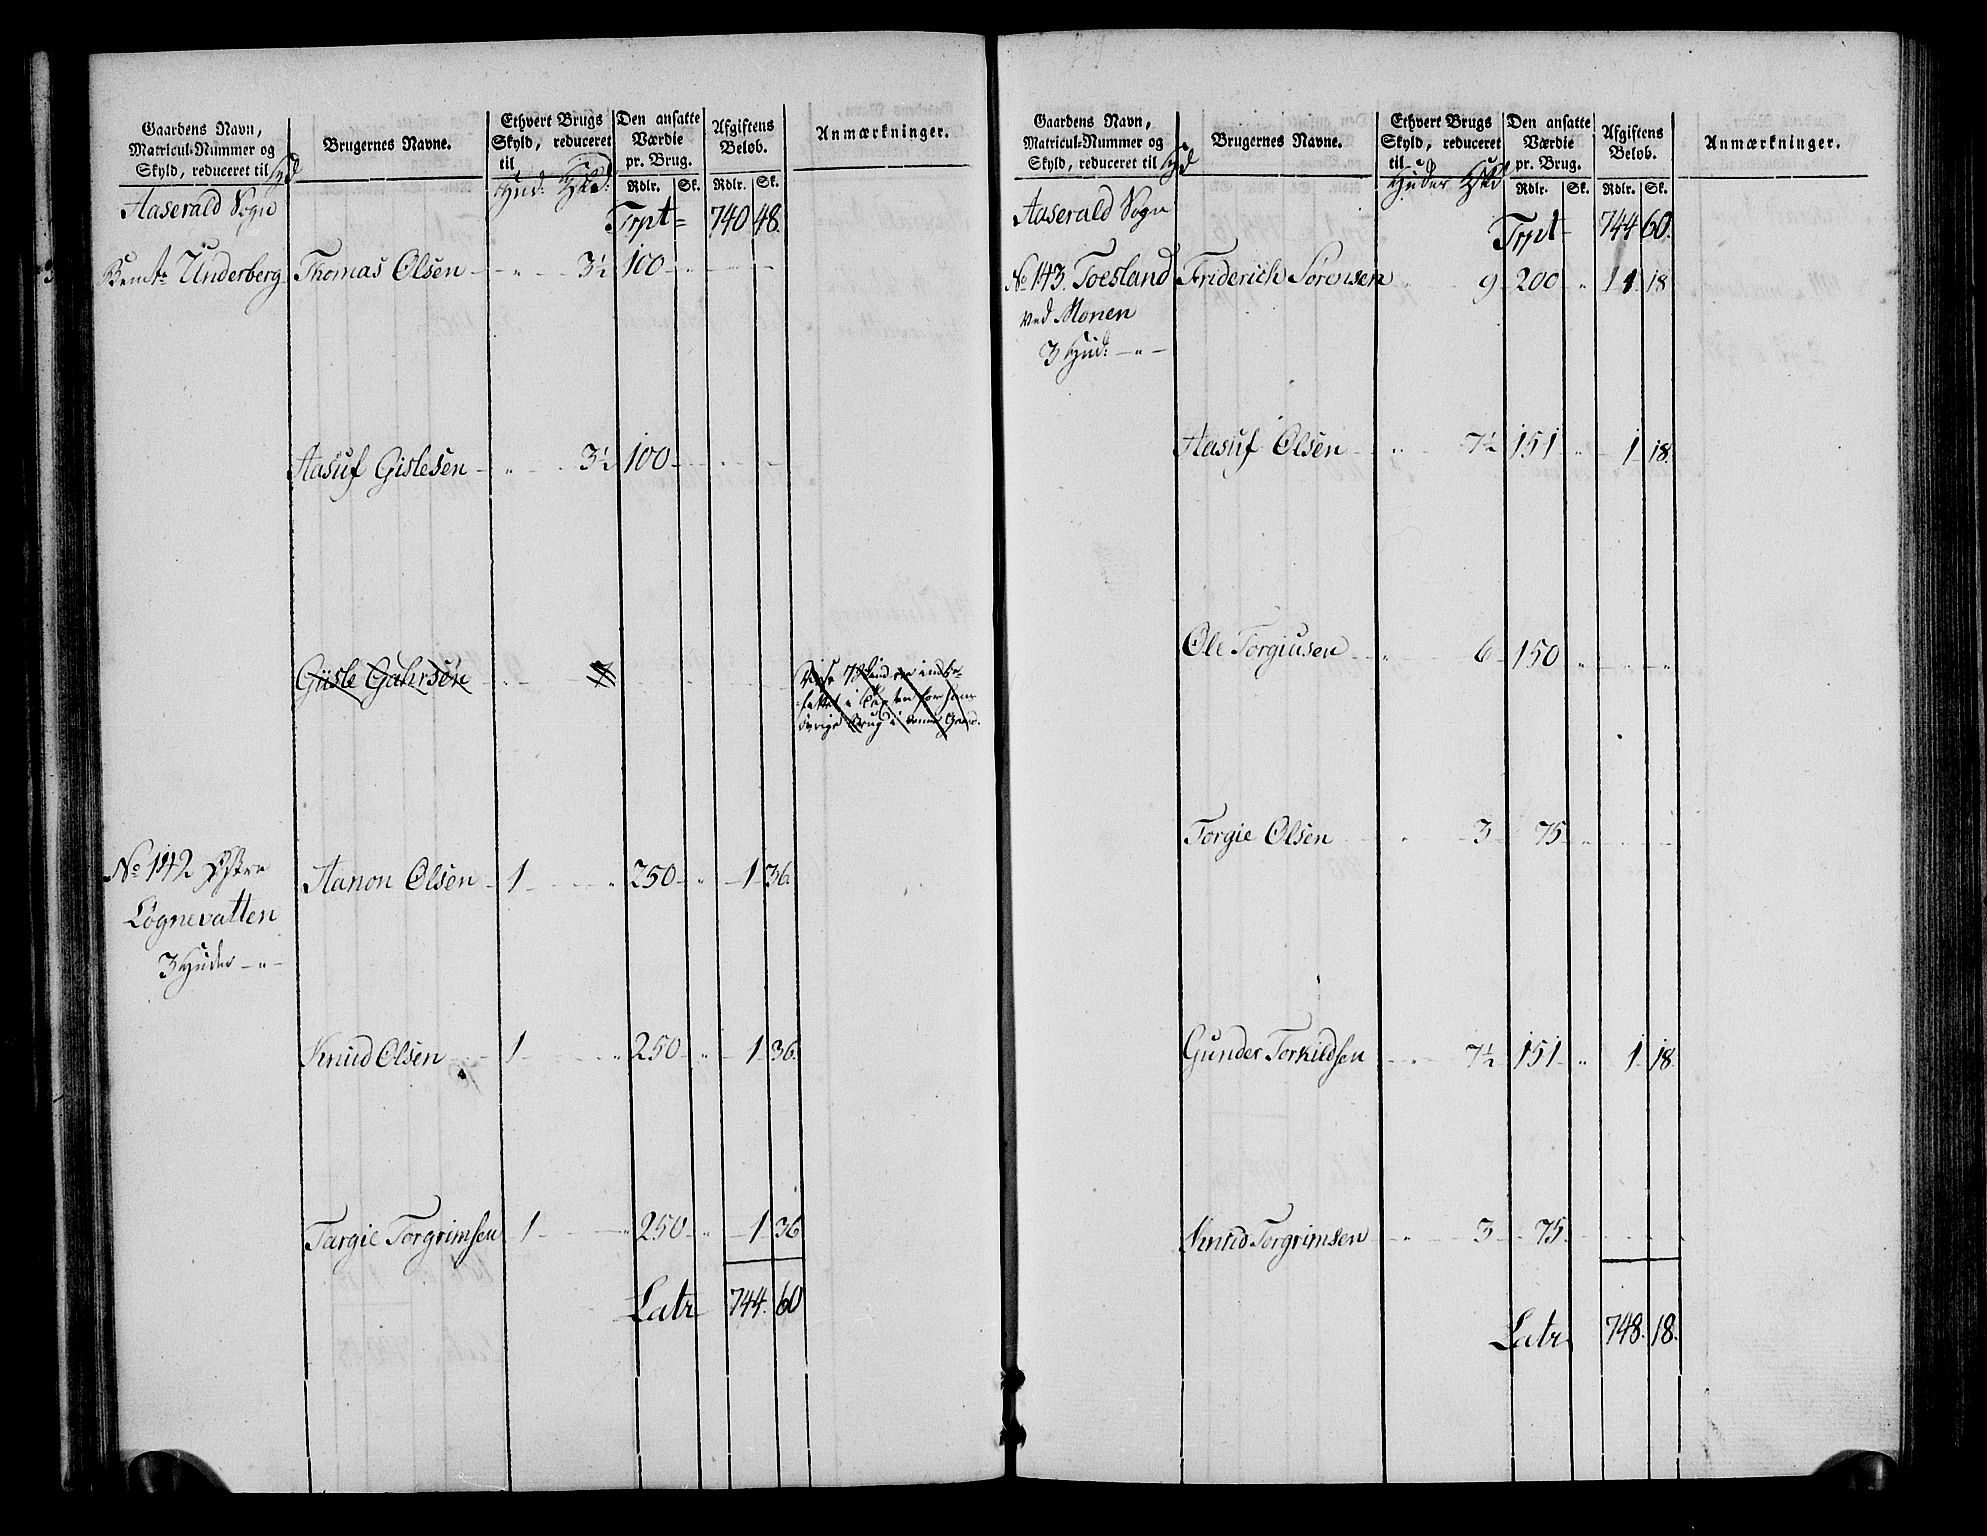 Gaardens Navn,
Matricul-Nummer og
Skyld, reduceret til Hd
Brugernes Navne.
Ethvert Brugs
Skyld, reduceret
til
Hud: Hkd:
Den ansatte
Værdie
pr. Brug.
Rdlr. Sk.
Afgiftens
Beløb.
Rdlr. Sk.
Anmærkninger.
Aaserald Sogn
Trpt 740 48.
Underberg Thomas Olsen - " - 3½ 100
Aasuf Gislesen - " - 3½ 100
Güsle Gahrsøn 7
No 142 Østre Aanon Olsen 1 " 250 " 1 36.
Løgnevatten
3 Huder - " -
Knud Olsen 1 " 250 " 1 36.
Targie Torgrimsen 1 " 250 " 1 36
Latr 744. 60
Gaardens Navn,
Matricul-Nummer og
Skyld, reduceret til Hd
Brugernes Navne.
Ethvert Brugs
Skyld, reduceret
til
Huder Hkd
Den ansatte
Værdie
pr. Brug.
Rdlr. Sk.
Afgiftens
Beløb.
Rdlr. Sk.
Anmærkninger.
Aaserald Sogn
Trpt 744 60.
No 143. Toesland Friderich Sörensen " 9 200 " 1 18
ved Monen
3 Hud: - " -
Aasuf Olsen " 7½ 151 " 1 18.
Ole Torgiusen " 6 150 " " "
Torgie Olsen " 3 75
Gunder Torkildsen " 7½ 151 " 1 18
Knud Torgrimsen " 3 75
Latr 748. 18.